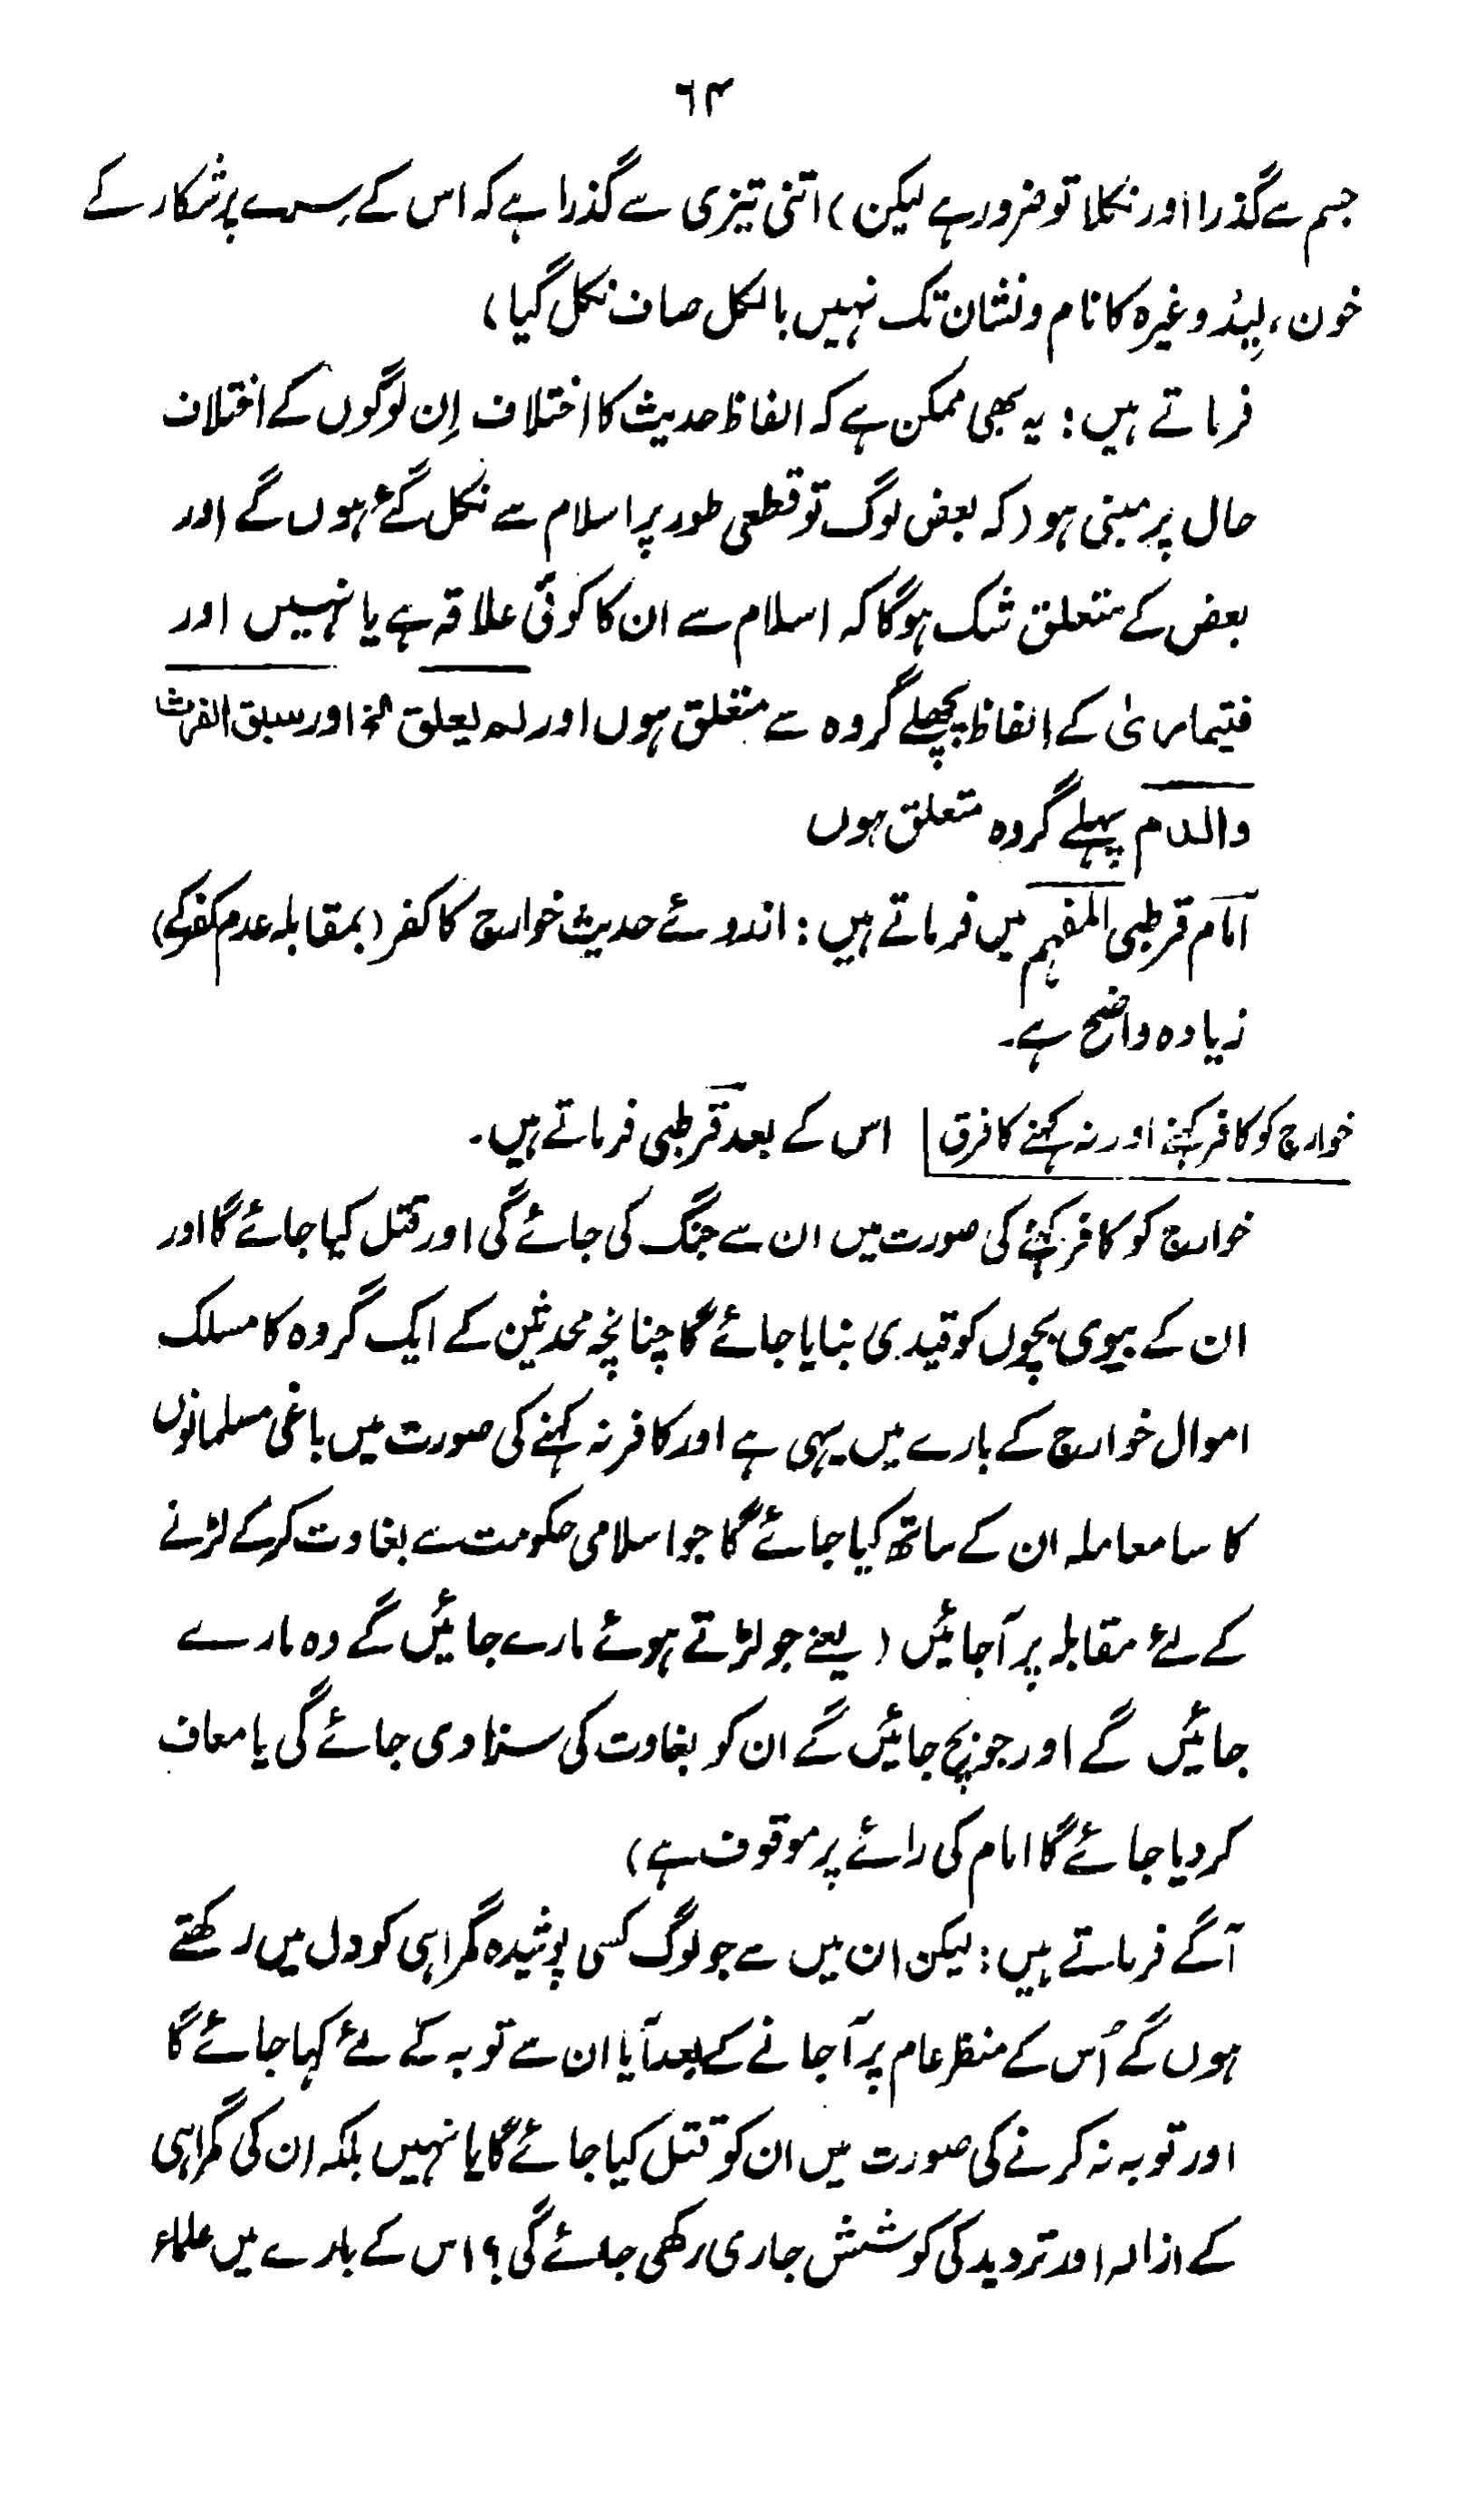 ۶۴
جسم سے گذرا اور نکلا تو ضرور ہے لیکن) اتنی تیزی سے گذرا ہے کہ اس کے سرے پر شکار کے
خون، لِید وغیرہ کا نام و نشان تک نہیں بالکل صاف نکل گیا)
فرماتے ہیں: یہ بھی ممکن ہے کہ الفاظ حدیث کا اختلاف اِن لوگوں کے اختلاف
حال پر مبنی ہو (کہ بعض لوگ تو قطعی طور پر اسلام سے نکل گئے ہوں گے اور
بعض کے متعلق شک ہوگا کہ اسلام سے ان کا کوئی علاقہ ہے یا نہیں اور
فیتماریٰ کے الفاظ پچھلے گروہ سے متعلق ہوں اور لم یعلق الخ اور سبق الفرث
والدم پہلے گروہ متعلق ہوں
امام قرطبی المفہم میں فرماتے ہیں: ازروئے حدیث خوارج کا کفر (بمقابلہ عدم کفر کے)
زیادہ واضح ہے۔
خوارج کو کافر کہنے اور نہ کہنے کا فرق اس کے بعد قرطبی فرماتے ہیں۔
خوارج کو کافر کہنے کی صورت میں ان سے جنگ کی جائے گی اور قتل کیا جائے گا اور
ان کے بیوی بچوں کو قیدی بنایا جائے گا چنانچہ محدثین کے ایک گروہ کا مسلک
اموال خوارج کے بارے میں یہی ہے اور کافر نہ کہنے کی صورت میں باغی مسلمانوں
کا سا معاملہ ان کے ساتھ کیا جائے گا جو اسلامی حکومت سے بغاوت کر کے لڑنے
کے لئے مقابلہ پر آجائیں (یعنے جو لڑتے ہوئے مارے جائیں گے وہ مارے
جائیں گے اور جو بچ جائیں گے ان کو بغاوت کی سزا دی جائے گی یا معاف
کردیا جائے گا امام کی رائے پر موقوف ہے)
آگے فرماتے ہیں: لیکن ان میں سے جو لوگ کسی پوشیدہ گمراہی کو دل میں رکھتے
ہوں گے اُس کے منظر عام پر آجانے کے بعد آیا ان سے توبہ کے لئے کہا جائے گا
اور توبہ نہ کرنے کی صورت میں ان کو قتل کیا جائے گا یا نہیں بلکہ ان کی گمراہی
کے ازالہ اور تردید کی کوشش جاری رکھی جائے گی؟ اس کے بارے میں علماء